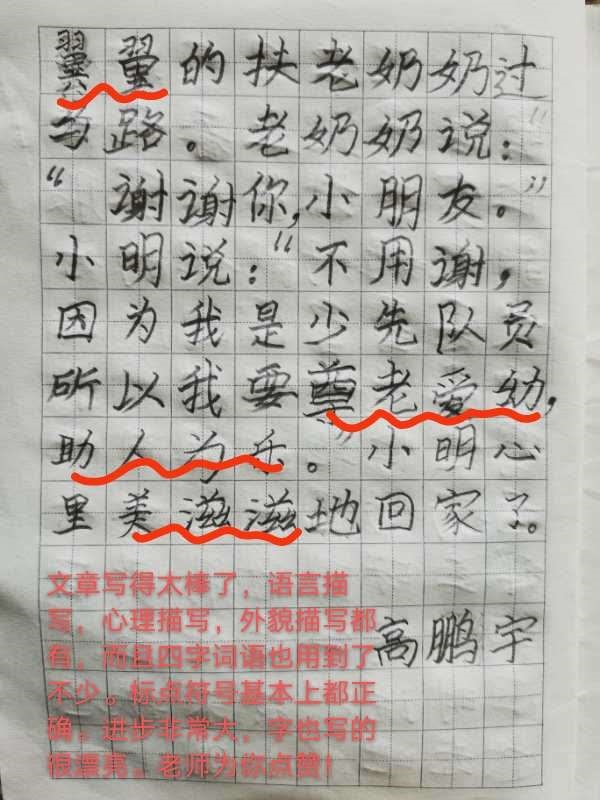 翼翼的扶老奶奶过
马路。老奶奶说:"
“谢谢你,小朋友。”
小明说:“不用谢,
因为我是少先队员
所以我要尊老爱幼,
助人为乐。”小明心
里美滋滋地回家了。
文章写得太棒了，语言描
写，心理描写，外貌描写都
有，而且四字词语也用到了
不少。标点符号基本上都正
确。进步非常大，字也写的
很漂亮。老师为你点赞！
高鹏宇